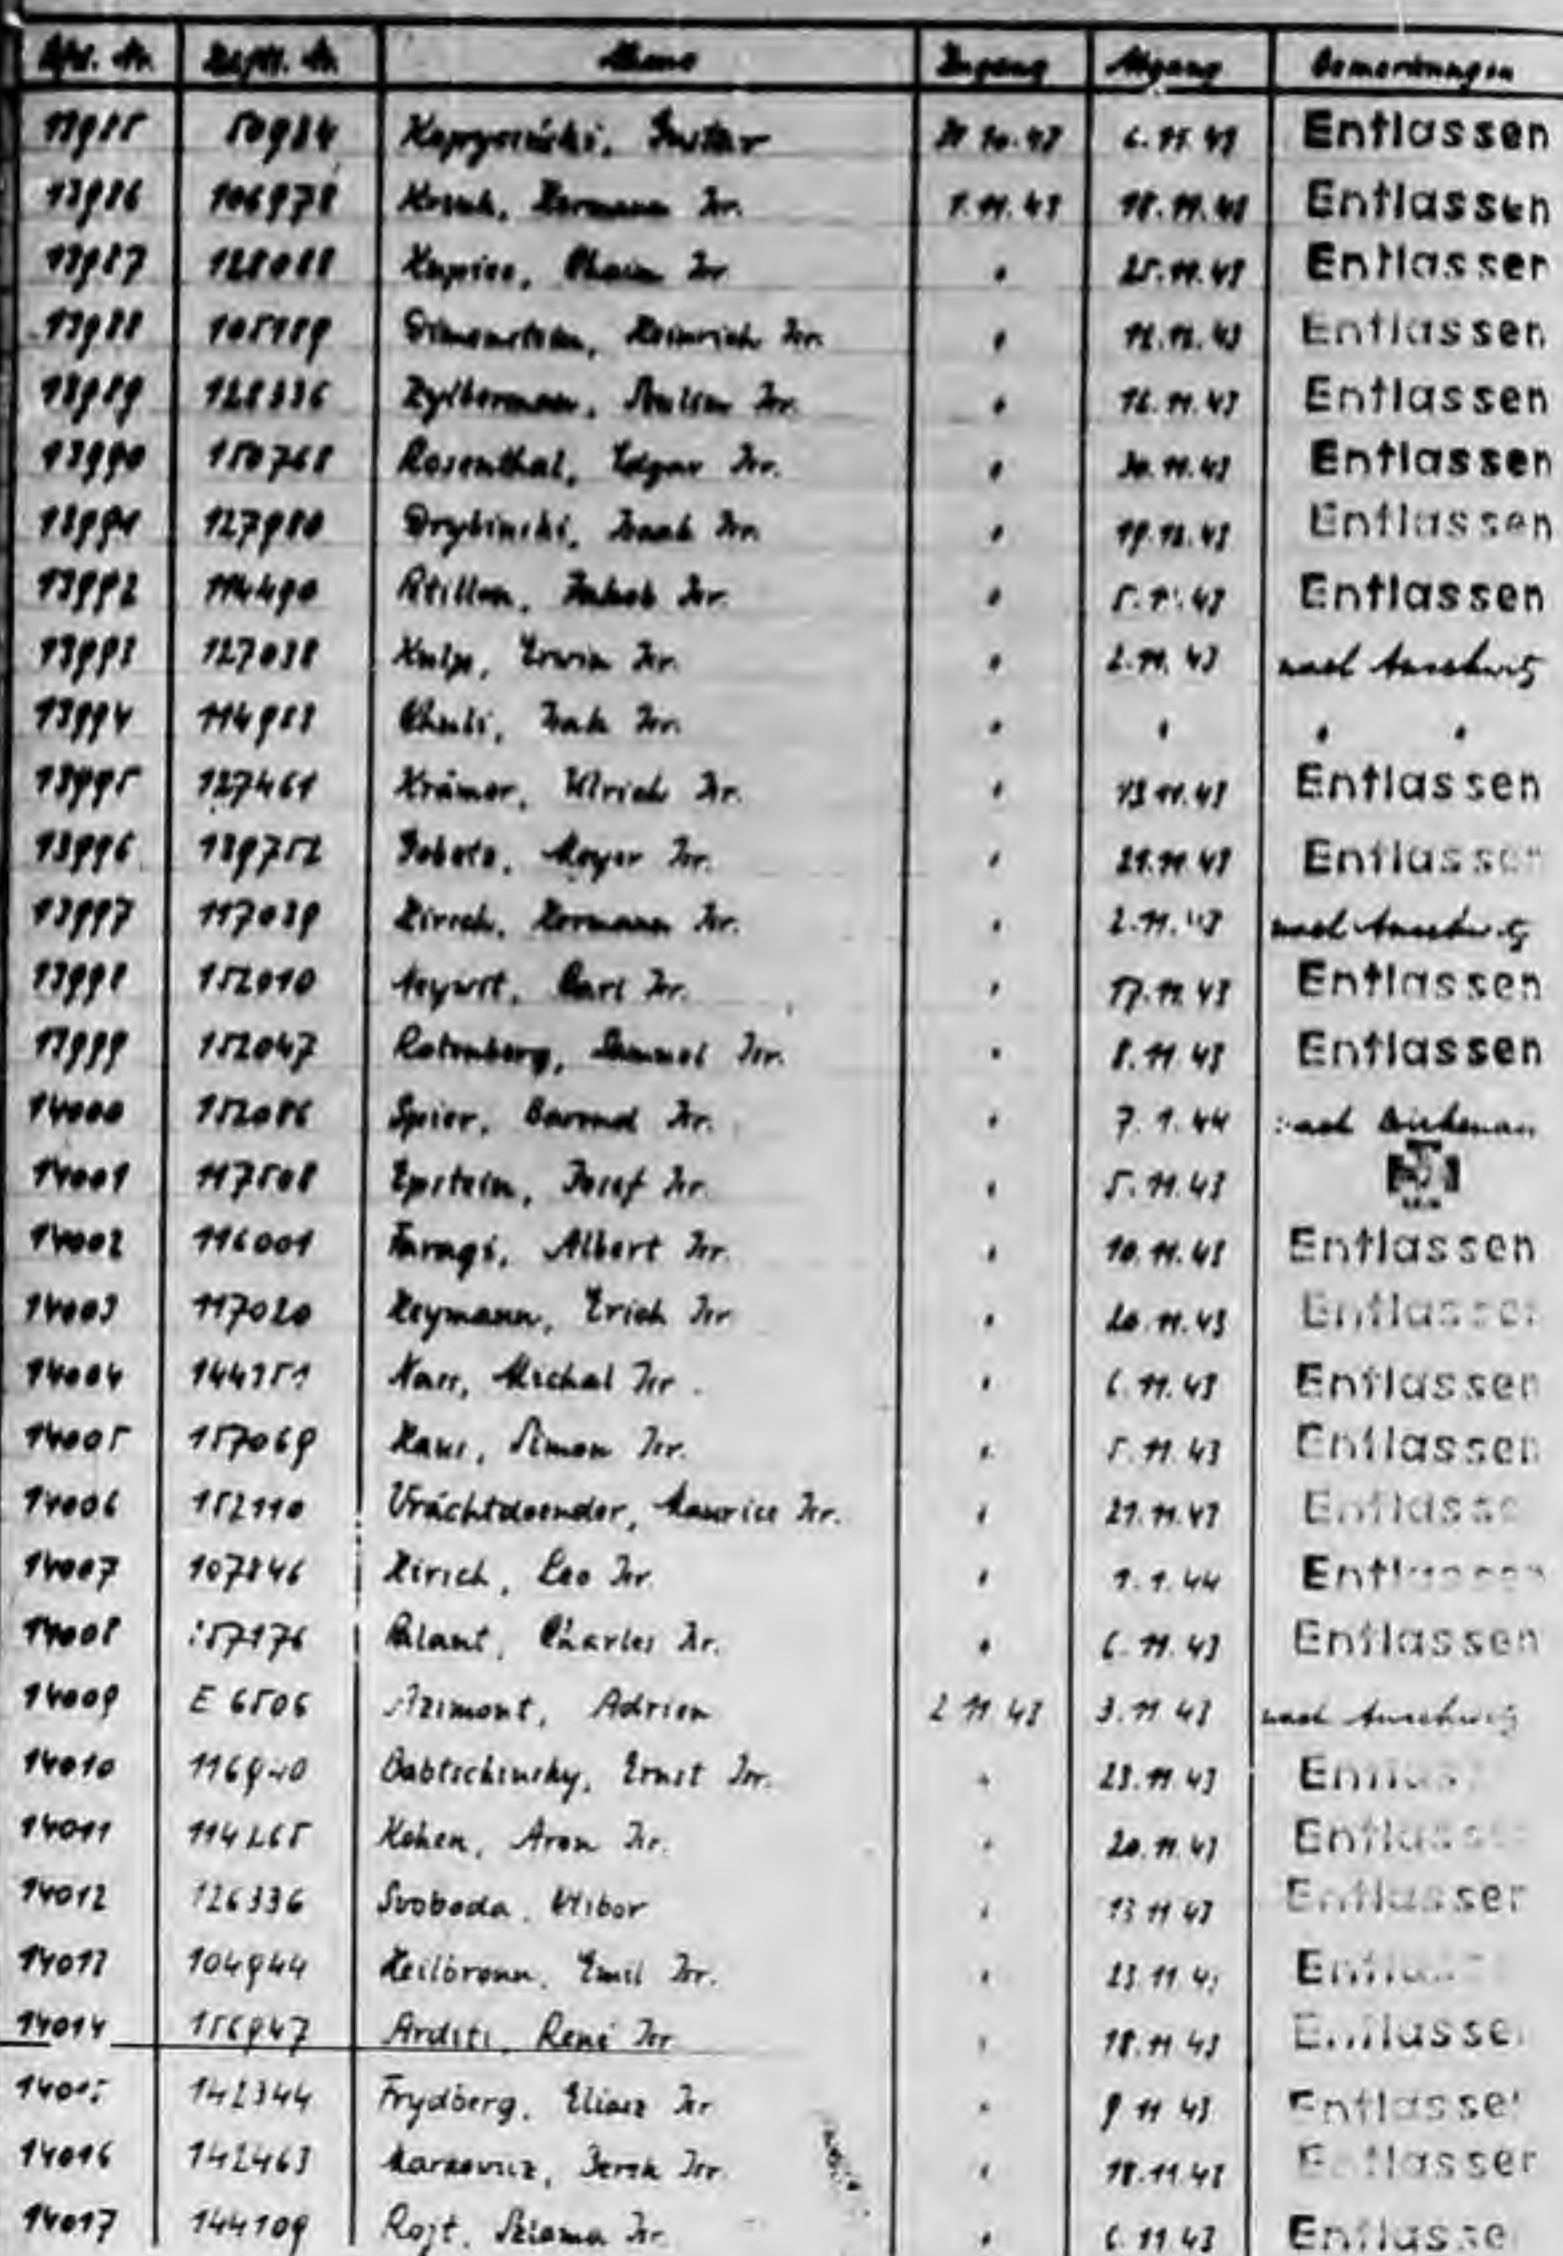 Lfd. Nr. Häftl. Nr. Name Zugang Abgang Bemerkungen
13985 50984 Gustav 31.10.43 6.11.43 Entlassen
13986 106978 Hermann Isr. 1.11.43 18.11.43 Entlassen
13987 128088 Chaim Isr. " 25.11.43 Entlassen
13988 105189 Heinrich Isr. " Entlassen
13989 128336 Zylbermann, Isr. " 16.11.43 Entlassen
13990 150768 Rosenthal, Edgar Isr. " 30.11.43 Entlassen
13991 127980 Drybinski, Isaak Isr. " Entlassen
13992 114490 Jakob Isr. " Entlassen
13993 127038 Erwin Isr. " 2.11.43 nach Auschwitz
13994 114983 Isak Isr. " " " "
13995 127461 Krämer, Ulrich Isr. " 13.11.43 Entlassen
13996 139752 Meyer Isr. " 21.11.43 Entlassen
13997 117039 Hirsch, Hermann Isr. " 2.11.43 nach Auschwitz
13998 152010 Carl Isr. " 17.11.43 Entlassen
13999 152047 Rotenberg, Samuel Isr. " 8.11.43 Entlassen
14000 152086 Spier, Barend Isr. " 7.1.44 nach Birkenau
14001 117508 Epstein, Josef Isr. " 5.11.43
14002 116001 Faragi, Albert Isr. " 10.11.43 Entlassen
14003 117020 Heymann, Erich Isr. " 20.11.43 Entlassen
14004 144351 Michal Isr. " 6.11.43 Entlassen
14005 157069 Haus, Simon Isr. " 5.11.43 Entlassen
14006 152110 Vrachtdoender, Maurice Isr. " 21.11.43 Entlassen
14007 107846 Hirsch, Leo Isr. " 1.1.44 Entlassen
14008 157176 Palant, Charles Isr. " 6.11.43 Entlassen
14009 E 6506 Azimont, Adrien 2.11.43 3.11.43 nach Auschwitz
14010 Babtschinsky, Ernst Isr. " 23.11.43 Entlassen
14011 114265 Kohen, Aron Isr. " 20.11.43 Entlassen
14012 126336 Svoboda, Ctibor " 13.11.43 Entlassen
14013 104944 Heilbronn, Emil Isr. " 23.11.43 Entlassen
14014 156947 Arditi, René Isr. " 18.11.43 Entlassen
14015 142344 Frydberg, Eliasz Isr. " 9.11.43 Entlassen
14016 142463 Markowicz, Berek Isr. " 18.11.43 Entlassen
14017 144109 Rojt, Szlama Isr. " 6.11.43 Entlassen